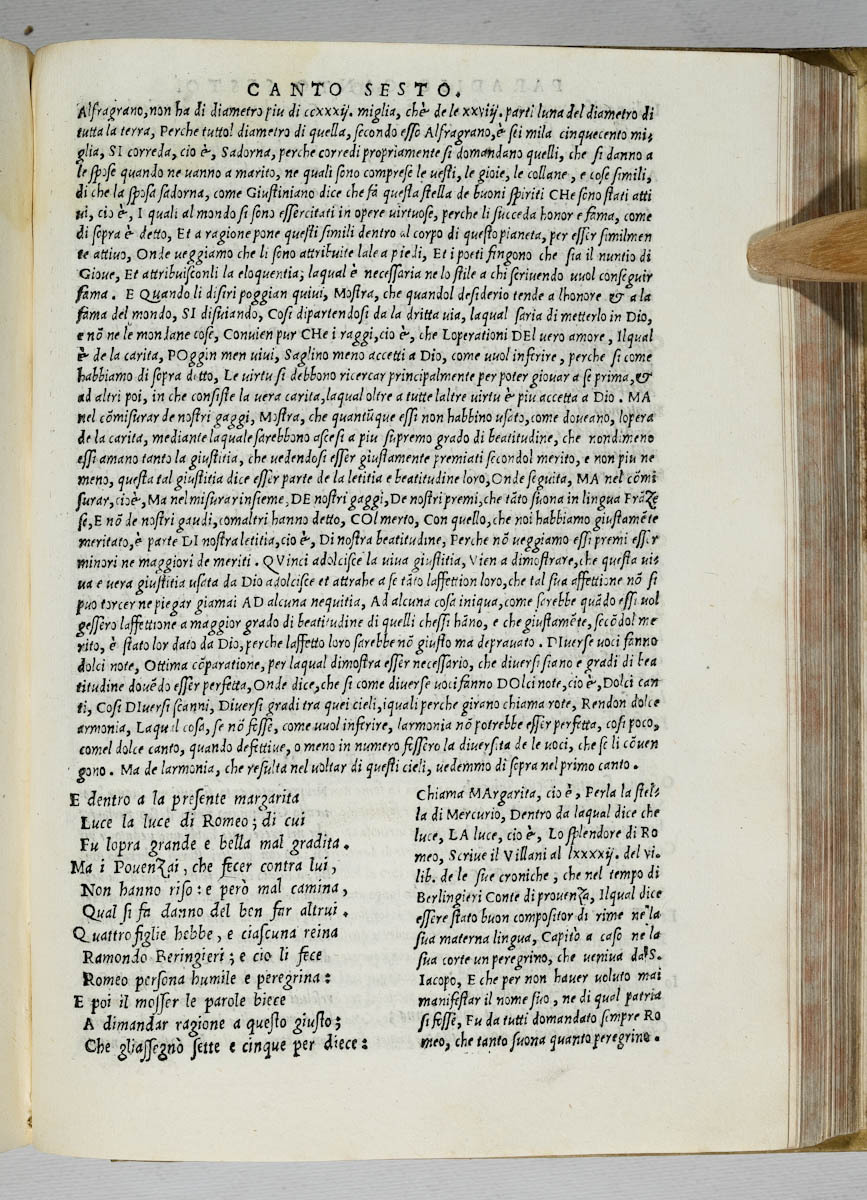 CANTO SESTO.
Alfragrano, non ha di diametro piu di ccxxxij. miglia, ch'è de le xxviij. parti luna del diametro di
tutta la terra, Perche tuttol diametro di quella, secondo esso Alfragrano, è sei mila cinquecento mi
glia, SI correda, cio è, Sadorna, perche corredi propriamente si domandano quelli, che si danno a
le spose quando ne vanno a marito, ne quali sono comprese le vesti, le gioie, le collane, e cose simili,
di che la sposa sadorna, come Giustiniano dice che fa questa stella de buoni spiriti CHe sono stati atti
ui, cio è, I quali al mondo si sono essercitati in opere virtuose, perche li succeda honor e fama, come
di sopra è detto, Et a ragione pone questi simili dentro al corpo di questo pianeta, per esser similmen
te attiuo, Onde ueggiamo che li sono attribuite lale a piedi, Et i poeti fingono che sia il nuntio di
Gioue, Et attribuisconli la eloquentia; laqual è necessaria ne lo stile a chi scriuendo uuol conseguir
fama. E Quando li disiri poggian quiui, Mostra, che quandol desiderio tende a lhonore & a la
fama del mondo, SI disuiando, Cosi dipartendosi da la dritta uia, laqual saria di metterlo in Dio,
e nõ ne le mondane cose, Conuien pur CHe i raggi, cio è, che Loperationi DEl uero amore, Ilqual
è de la carita, POggin men uiui, Saglino meno accetti a Dio, come uuol inferire, perche si come
habbiamo di sopra detto, Le uirtu si debbono ricercar principalmente per poter giouar a se prima, &
ad altri poi, in che consiste la uera carita, laqual oltre a tutte laltre uirtu è piu accetta a Dio. MA
nel cõmisurar de nostri gaggi, Mostra, che quantũque essi non habbino usato, come doueano, lopera
de la carita, mediante laquale sarebbono ascesi a piu supremo grado di beatitudine, che nondimeno
essi amano tanto la giustitia, che uedendosi esser giustamente premiati secondol merito, e non piu ne
meno, questa tal giustitia dice esser parte de la letitia e beatitudine loro, Onde seguita, MA nel cõmi
surar, cio è, Ma nel misurar insieme, DE nostri gaggi, De nostri premi, che tãto suona in lingua Frãze
se, E nõ de nostri gaudi, comaltri hanno detto, COl merto, Con quello, che noi habbiamo giustamẽte
meritato, è parte DI nostra letitia, cio è, Di nostra beatitudine, Perche nõ ueggiamo essi premi esser
minori ne maggiori de meriti. QVinci adolcisce la uiua giustitia, Vien a dimostrare, che questa ui
ua e uera giustitia usata da Dio adolcisce et attrahe a se tãto laffettion loro, che tal sua affettione nõ si
puo torcer ne piegar giamai AD alcuna nequitia, Ad alcuna cosa iniqua, come serebbe quãdo essi uol
gessero laffettione a maggior grado di beatitudine di quelli chessi hãno, e che giustamẽte, secõdol me
rito, è stato lor dato da Dio, perche laffetto loro sarebbe nõ giusto ma deprauato. DIuerse uoci fanno
dolci note, Ottima cõparatione, per laqual dimostra esser necessario, che diuersi siano e gradi di bea
titudine douẽdo esser perfetta, Onde dice, che si come diuerse uoci fanno DOlci note, cio è, Dolci can
ti, Cosi DIuersi scanni, Diuersi gradi tra quei cieli, iquali perche girano chiama rote, Rendon dolce
armonia, Laqual cosa, se nõ fesse, come uuol inferire, larmonia nõ potrebbe esser perfetta, cosi poco,
comel dolce canto, quando defettiue, o meno in numero fessero la diuersita de le uoci, che se li cõuen
gono. Ma de larmonia, che resulta nel uoltar di questi cieli, uedemmo di sopra nel primo canto.
E dentro a la presente margarita
Luce la luce di Romeo; di cui
Fu lopra grande e bella mal gradita.
Ma i Prouenzai, che fecer contra lui,
Non hanno riso: e però mal camina,
Qual si fa danno del ben far altrui.
Quattro figlie hebbe, e ciascuna reina
Ramondo Beringieri; e cio li fece
Romeo persona humile e peregrina:
E poi il mosser le parole biece
A dimandar ragione a questo giusto;
Che gliassegnò sette e cinque per diece:
Chiama MArgarita, cio è, Perla la stel
la di Mercurio, Dentro da laqual dice che
luce, LA luce, cio è, Lo splendore di Ro
meo, Scriue il Villani al lxxxxij. del vi.
lib. de le sue croniche, che nel tempo di
Berlingieri Conte di prouenza, Ilqual dice
essere stato buon compositor di rime ne la
sua materna lingua, Capitò a caso ne la
sua corte un peregrino, che ueniua da S.
Iacopo, E che per non hauer uoluto mai
manifestar il nome suo, ne di qual patria
si fesse, Fu da tutti domandato sempre Ro
meo, che tanto suona quanto peregrino.